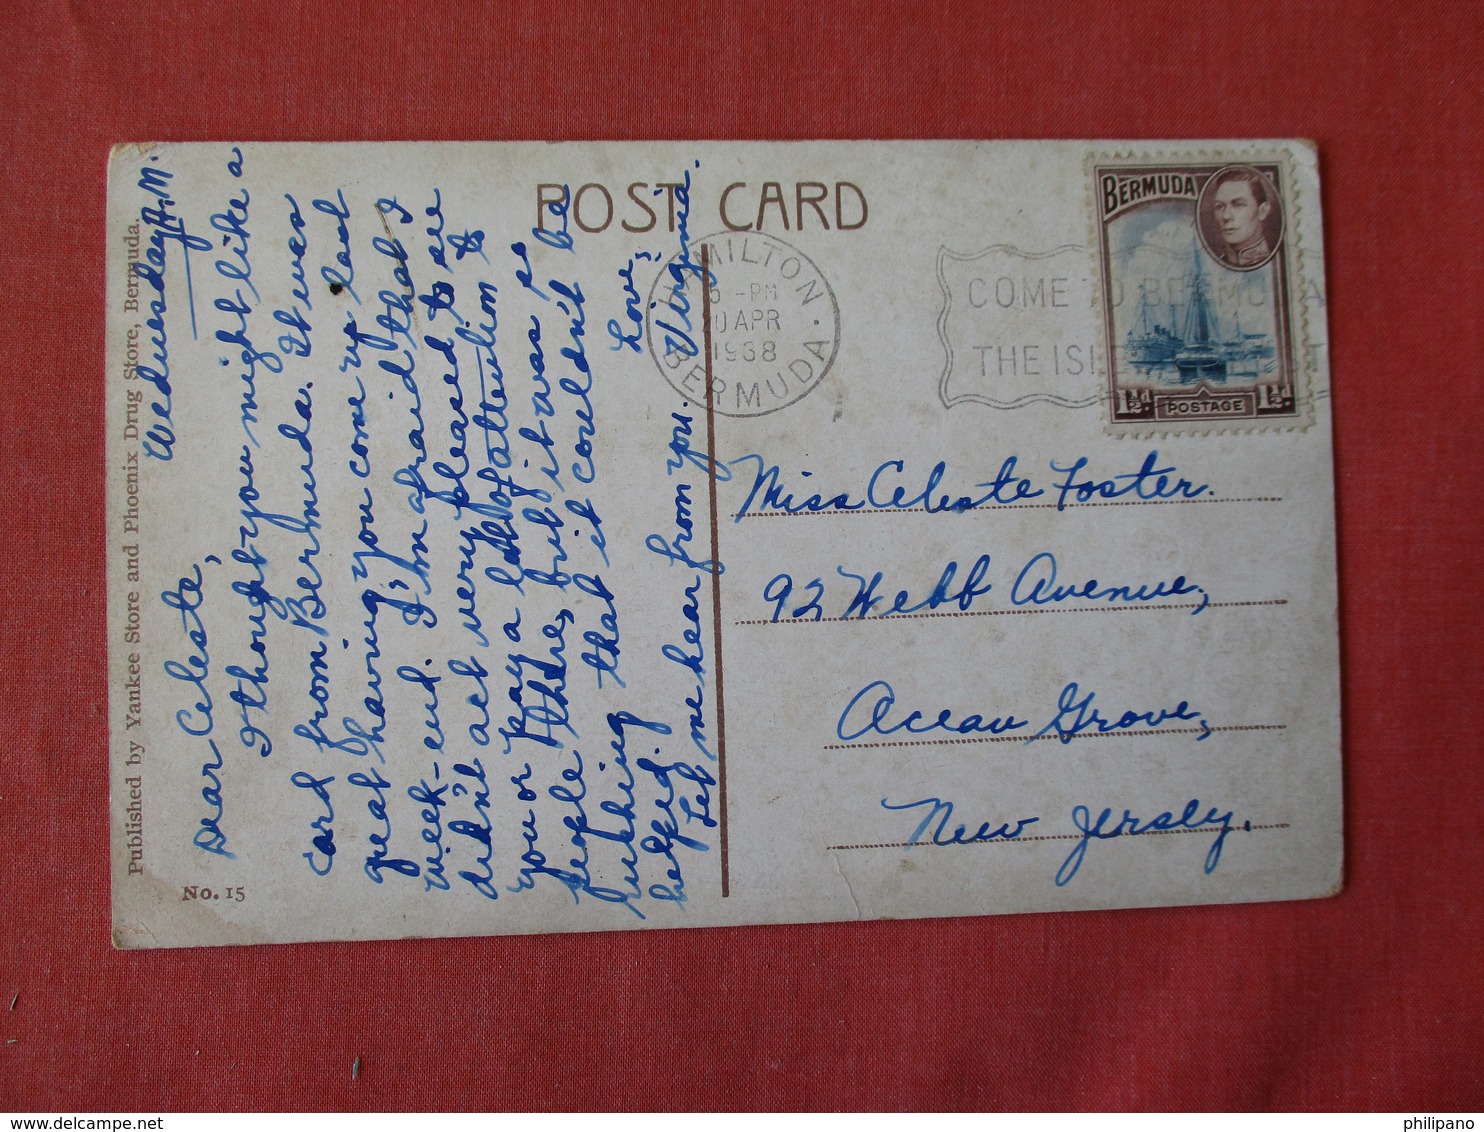 POST CARD
Wednesday A.M.
Dear Celeste,
I thought you might like a
card from Bermuda. It was
great having you come up last
week-end. I'm afraid that I
didn't act very pleased to see
you or pay a lot of attention to
people there, but it was so
rushing that it couldn't be
helped.
Let me hear from you.
Love,
Virginia.
Published by Yankee Store and Phoenix Drug Store, Bermuda.
No. 15
HAMILTON
5 - PM
20 APR
1938
BERMUDA
COME TO BERMUDA
THE ISL
BERMUDA
1½d. POSTAGE 1½d.
Miss Celeste Foster.
92 Webb Avenue,
Ocean Grove,
New Jersey.
delcampe.net
philipano